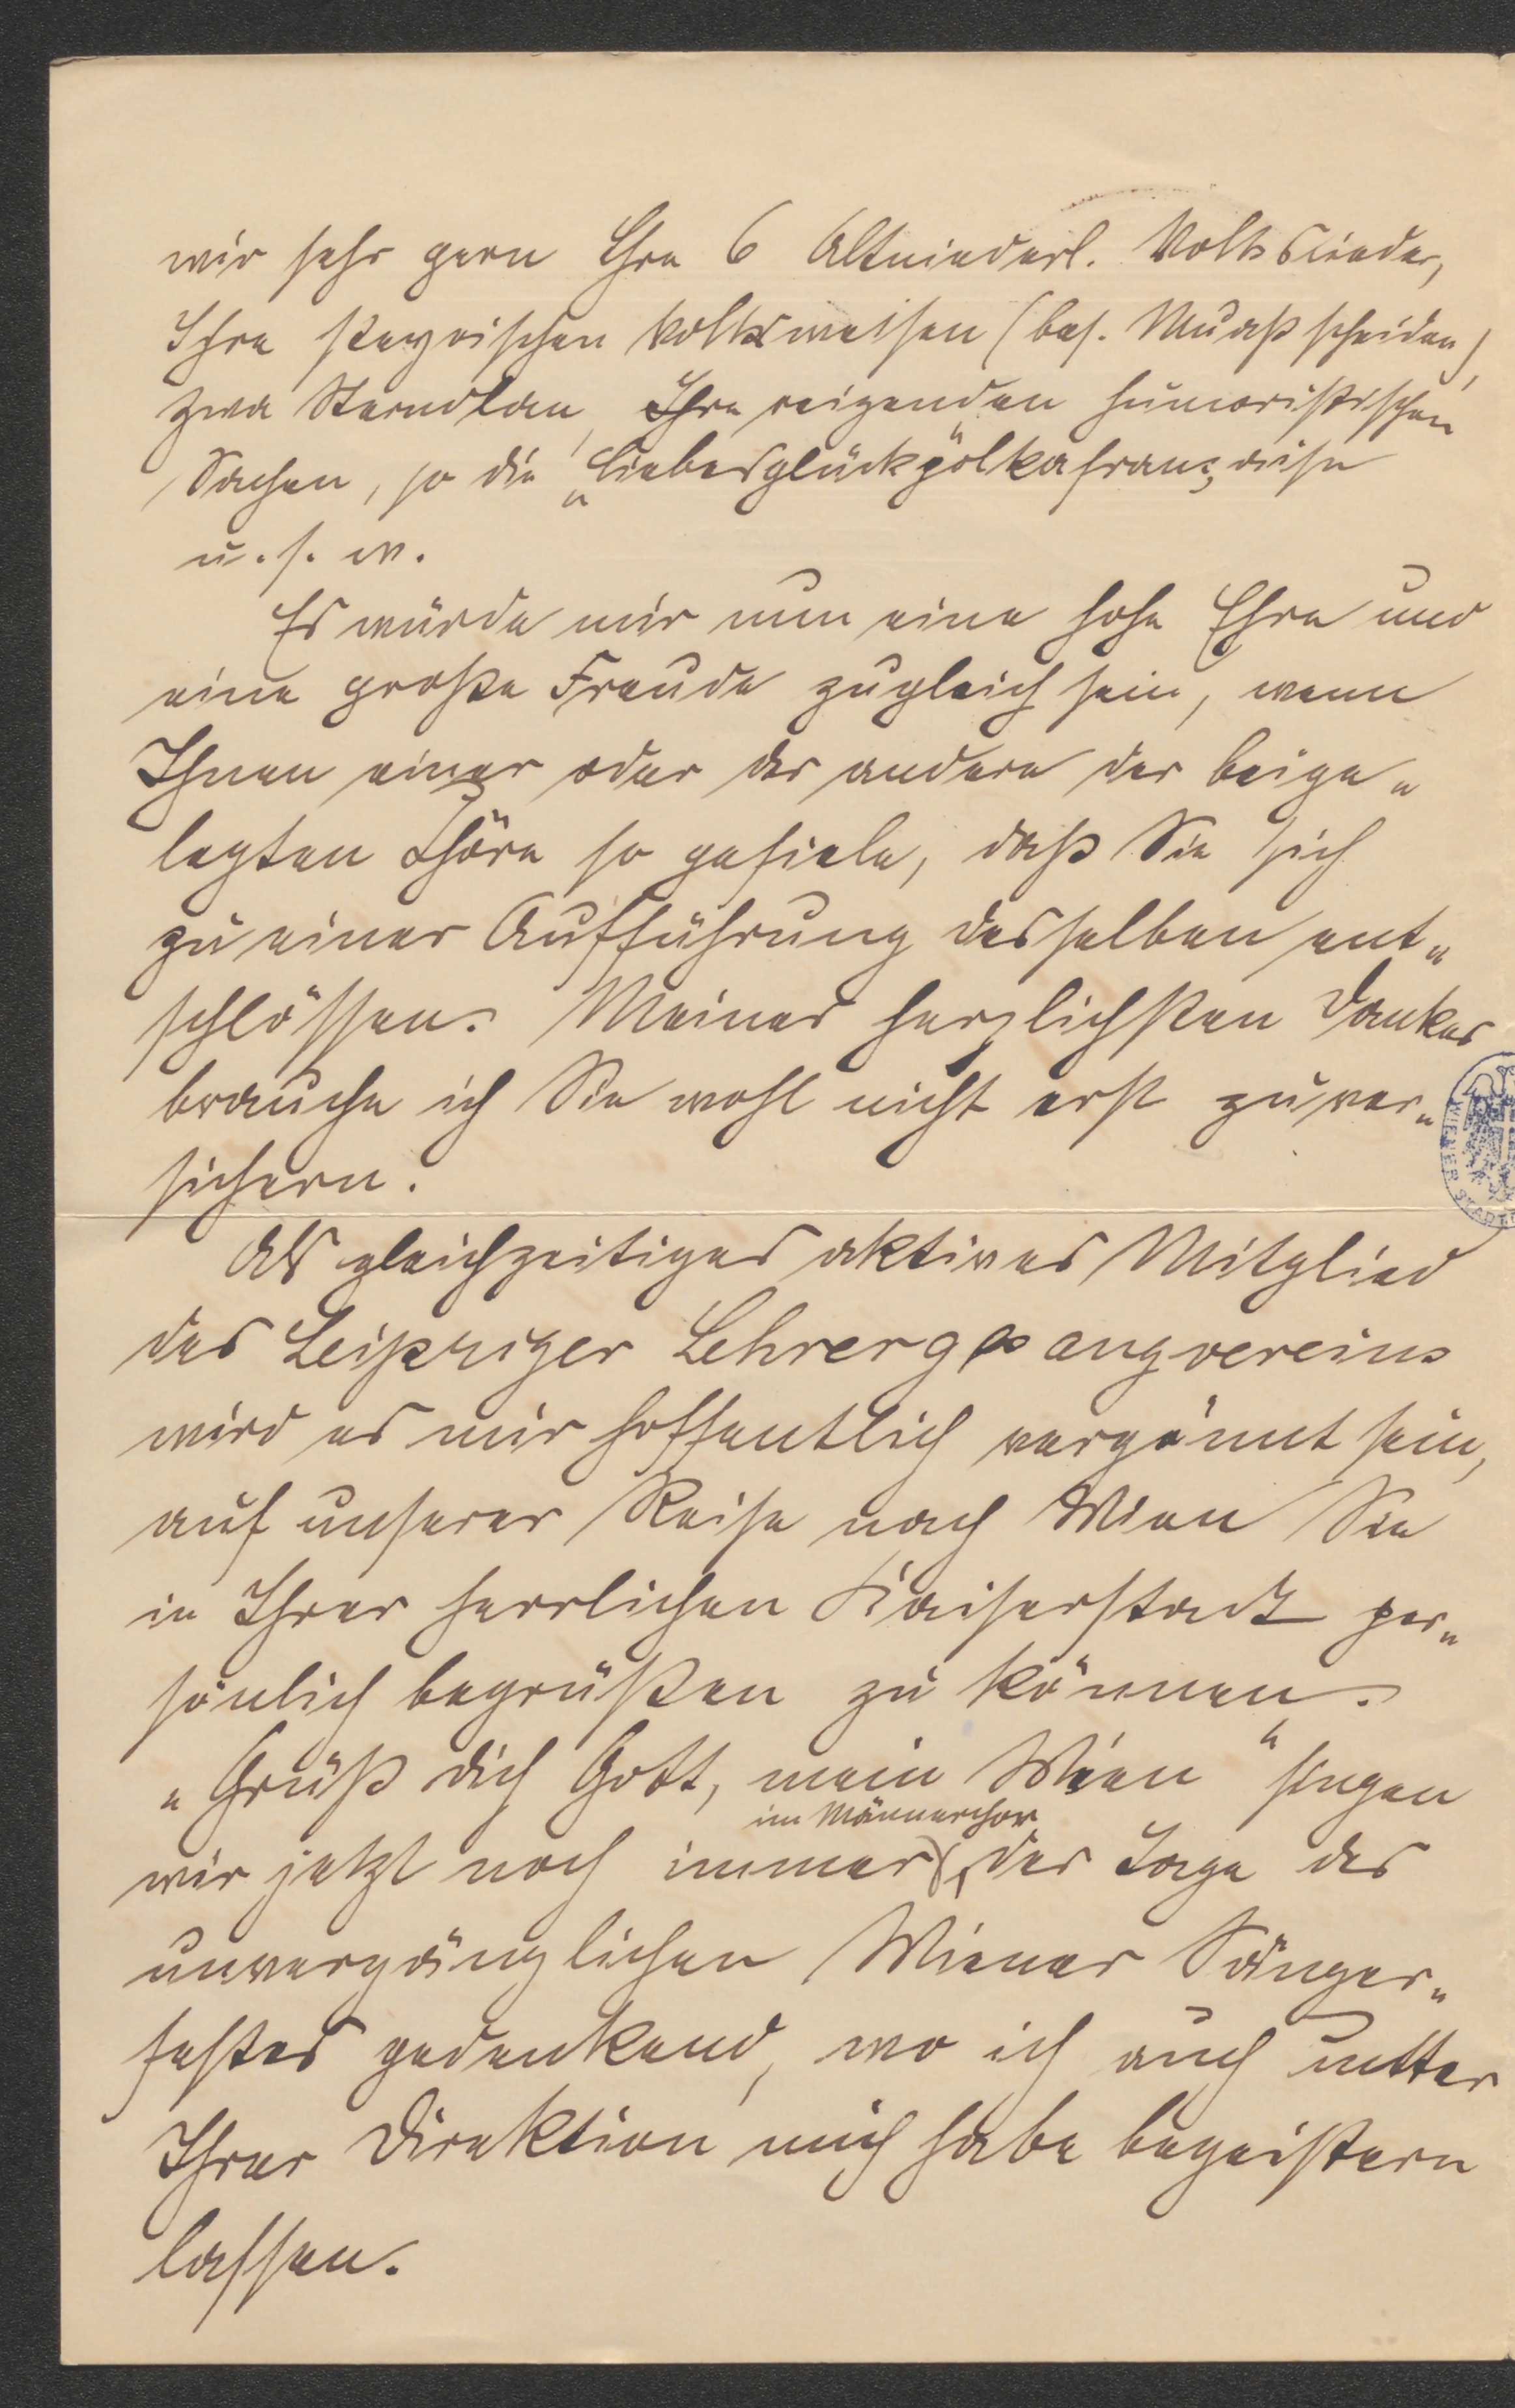 wir sehr gern Ihre 6 Altniederl. Volkslieder,
Ihre steyrischen Volksweisen (bes. Muaßt scheiden,)
Zwa Sterndlan, Ihre reizenden humoristischen
Sachen, so die „Liebesglück“polkafrançaise
u. s. w.
Es würde mir nun eine hohe Ehre und
eine große Freude zugleich sein, wenn
Ihnen einer oder der andere der beige„
legten Chöre so gefiele, daß Sie sich
zu einer Aufführung desselben ent„
schlössen. Meines herzlichsten Dankes
brauche ich Sie wohl nicht erst zu ver„
sichern.
Als gleichzeitiges aktives Mitglied
des Leipziger Lehrergesangvereins
wird es mir hoffentlich vergönnt sein,
auf unserer Reise nach Wien Sie
in Ihrer herrlichen Kaiserstadt per„
sönlich begrüßen zu können.
„Grüß dich Gott, mein Wien“ singen
im Männerchor
wir jetzt noch immer, der Tage des
unvergänglichen Wiener Sänger„
festes gedenkend, wo ich auch unter
Ihrer Direktion mich habe begeistern
lassen.
WIENER STADT